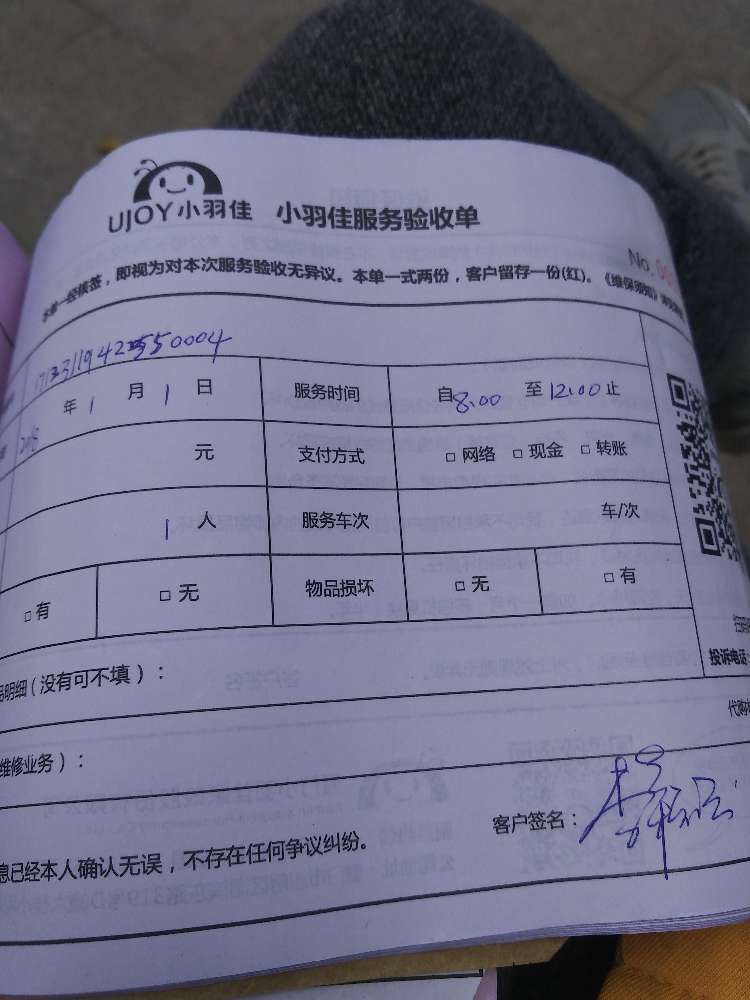 UJOY小羽佳 小羽佳服务验收单
No.
本单一经核签，即视为对本次服务验收无异议。本单一式两份，客户留存一份(红)。《维保须知》
年1月1日 服务时间 自8:00 至12:00止
元 支付方式 □ 网络 □ 现金 □ 转账
1人 服务车次 车/次
□ 有 □ 无 物品损坏 □ 无 □ 有
投诉电话:
明细(没有可不填)：
维修业务)：
客户签名：
息已经本人确认无误，不存在任何争议纠纷。